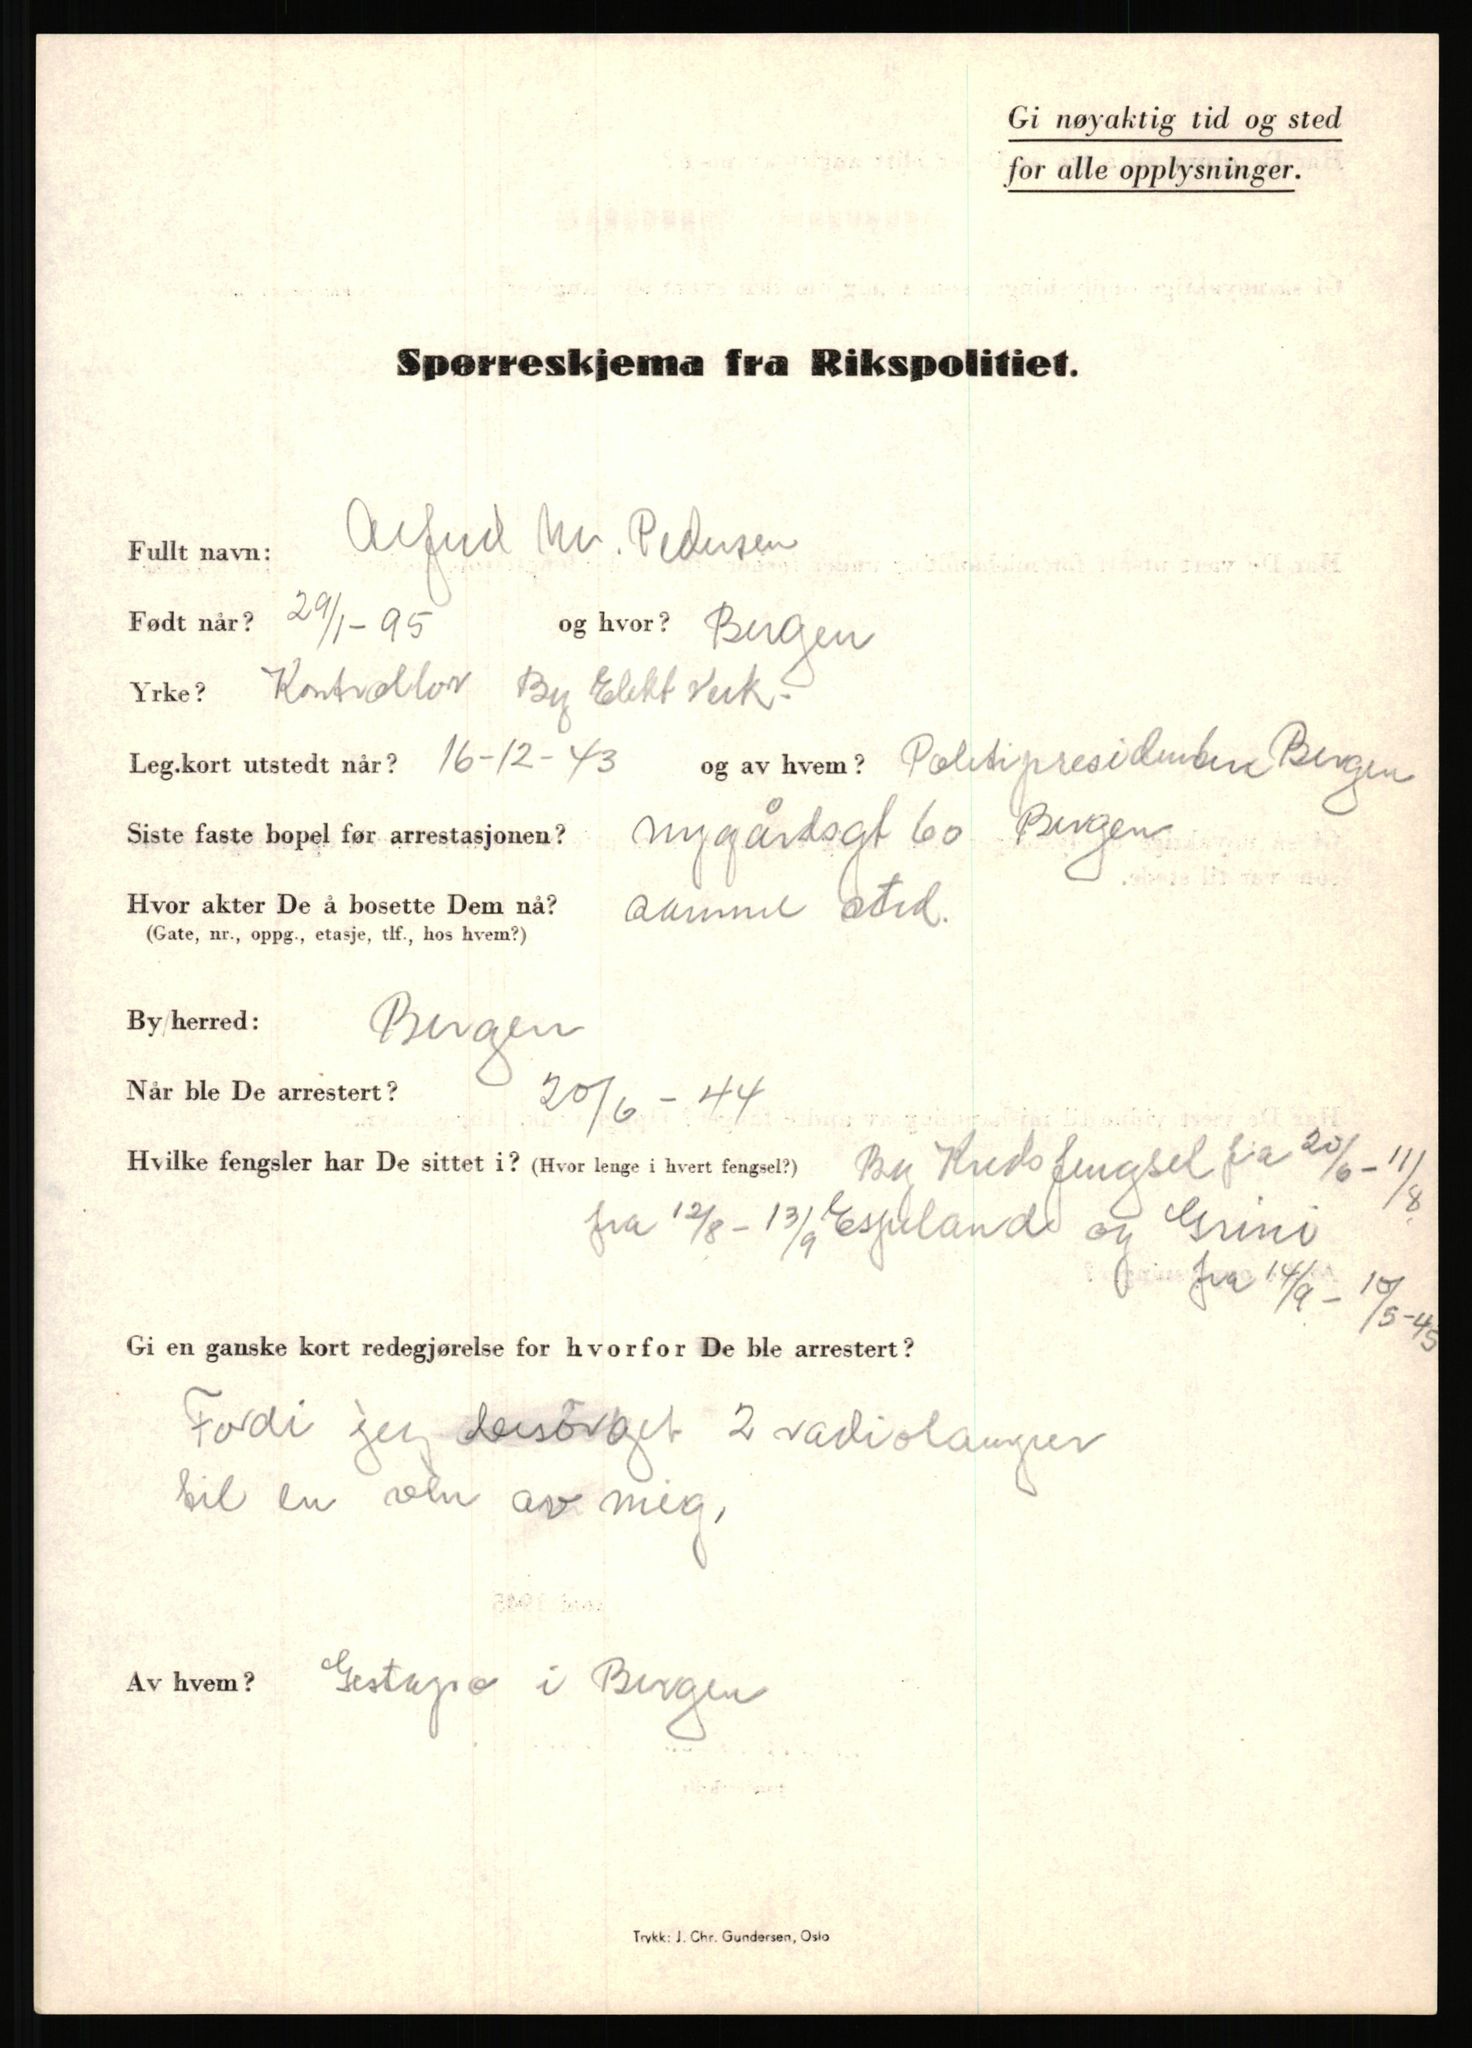 Gi nøyaktig tid og sted
for alle opplysninger.
Spørreskjema fra Rikspolitiet.
Fullt navn: Alfred M. Pedersen
Født når? 29/1-95 og hvor? Bergen
Yrke? Kontrollør By Elekt Verk.-
Leg.kort utstedt når? 16-12-43 og av hvem? Politipresidenten Bergen
Siste faste bopel før arrestasjonen? Nygårdsgt 60 Bergen
Hvor akter De å bosette Dem nå? samme sted.
(Gate, nr., oppg., etasje, tlf., hos hvem?)
By/herred: Bergen
Når ble De arrestert? 20/6-44
Hvilke fengsler har De sittet i? (Hvor lenge i hvert fengsel?) By Kredsfengsel fra 20/6-11/8
fra 12/8-13/9 Espeland og Grini
fra 14/9-10/5-45
Gi en ganske kort redegjørelse for hvorfor De ble arrestert?
Fordi jeg besörget 2 radiolamper
til en ven av mig,
Av hvem? Gestapo i Bergen
Trykk: J. Chr. Gundersen, Oslo